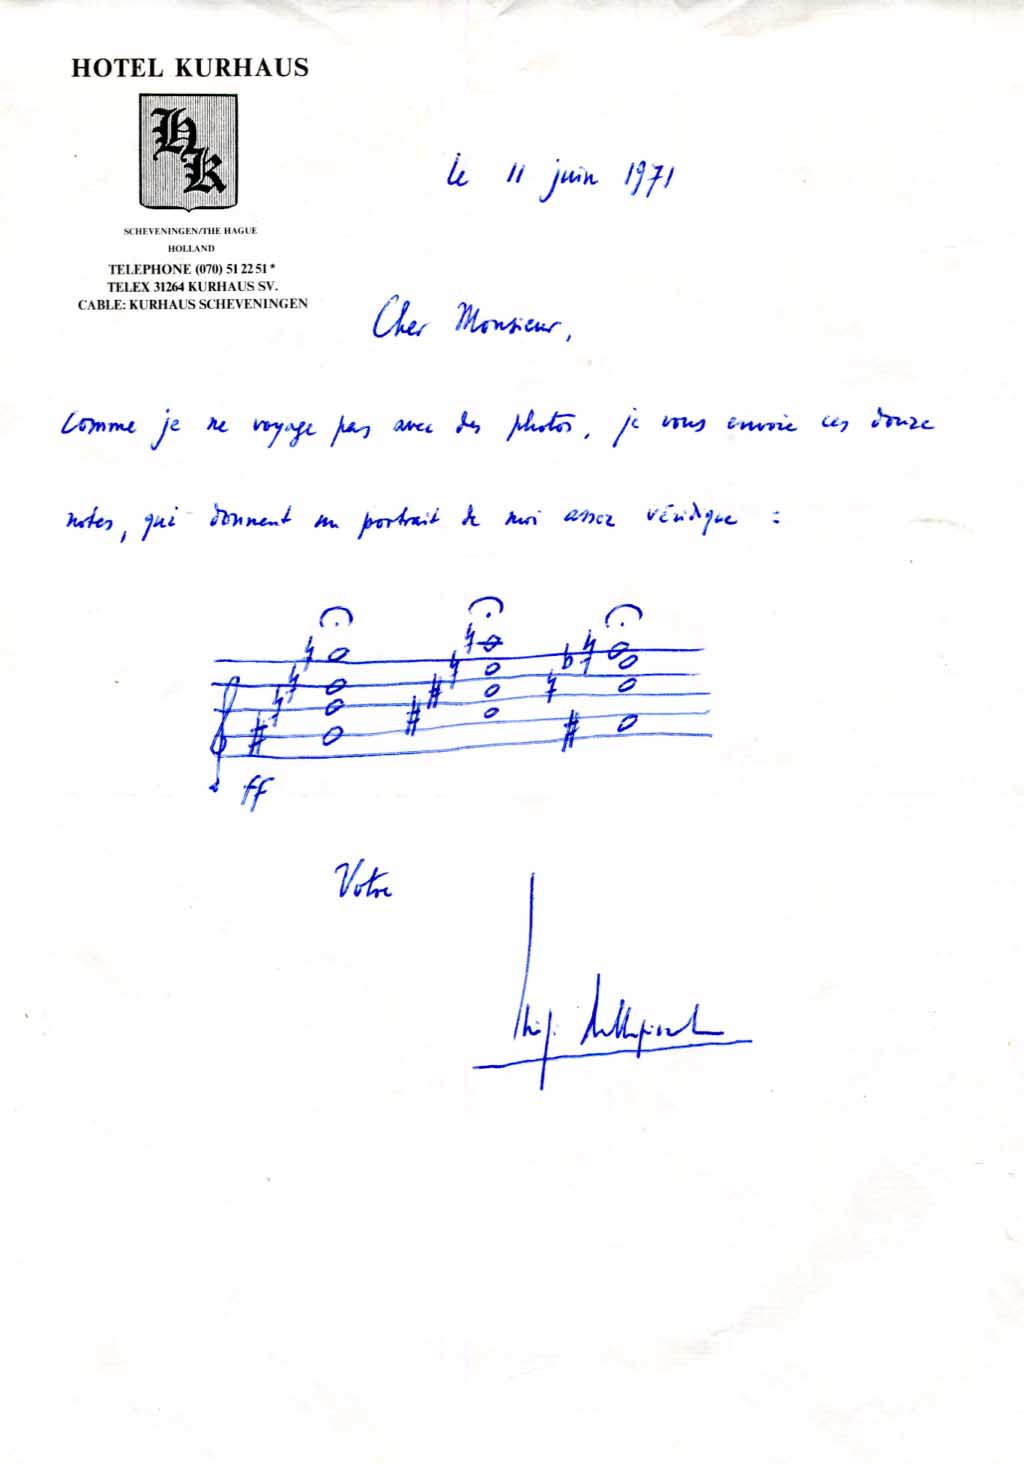 HOTEL KURHAUS
HK
SCHEVENINGEN/THE HAGUE
HOLLAND
TELEPHONE (070) 51 22 51*
TELEX 31264 KURHAUS SV.
CABLE: KURHAUS SCHEVENINGEN
le 11 juin 1971
Cher Monsieur,
Comme je ne voyage pas avec des photos, je vous envoie ces douze
notes, qui donnent un portrait de moi assez véridique :
ff
Votre